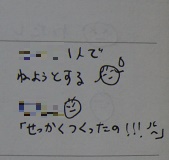 1人で
ねようとする
「せっかくつくったの!!!